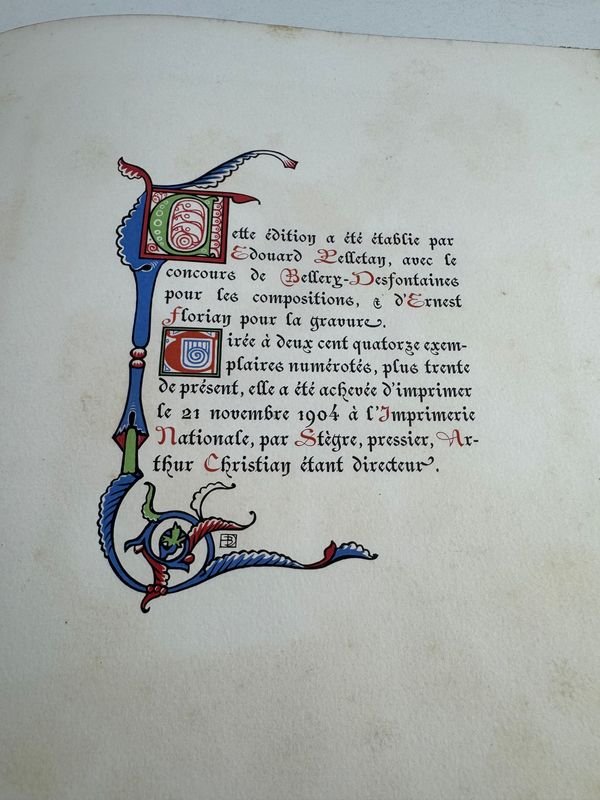 Cette édition a été établie par
Edouard Pelletan, avec le
concours de Bellery-Desfontaines
pour les compositions, & d'Ernest
Florian pour la gravure.
Tirée à deux cent quatorze exem-
plaires numérotés, plus trente
de présent, elle a été achevée d'imprimer
le 21 novembre 1904 à l'Imprimerie
Nationale, par Stègre, pressier, Ar-
thur Christian étant directeur.